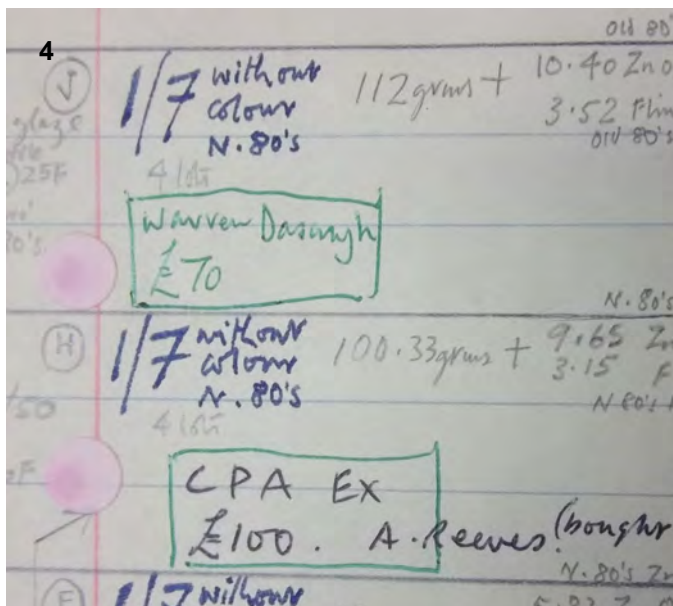 4
Old 80's
J 1/7 without colour N. 80's 112 grms + 10.40 ZnO
3.52 Flin
Old 80's
glaze
25F
4 lots
£70
N. 80's
H 1/7 without colour N. 80's 100.33 grms + 9.65 Zn
3.15 F
N 80's
/50
4 lots
CPA EX
£100. A. Reeves (bought
N. 80's Zn
F 1/7 without